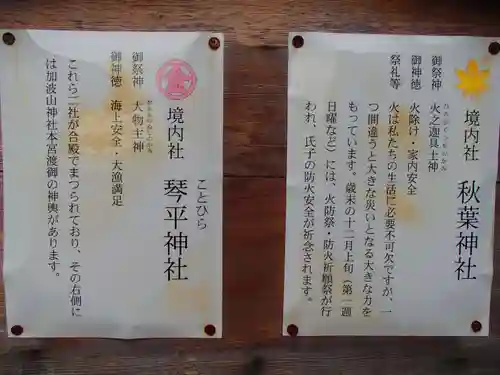 境内社 秋葉神社
御祭神 火之迦具土神
ひのかぐつちのかみ
御神徳 火除け・家内安全
祭礼等 火は私たちの生活に必要不可欠ですが、一
つ間違うと大きな災いとなる大きな力を
もっています。歳末の十二月上旬（第一週
日曜など）には、火防祭・防火祈願祭が行
われ、氏子の防火安全が祈念されます。
境内社 琴平神社
ことひら
御祭神 大物主神
御神徳 海上安全・大漁満足
これら二社が合殿でまつられており、その右側に
は加波山神社本宮渡御の神輿があります。